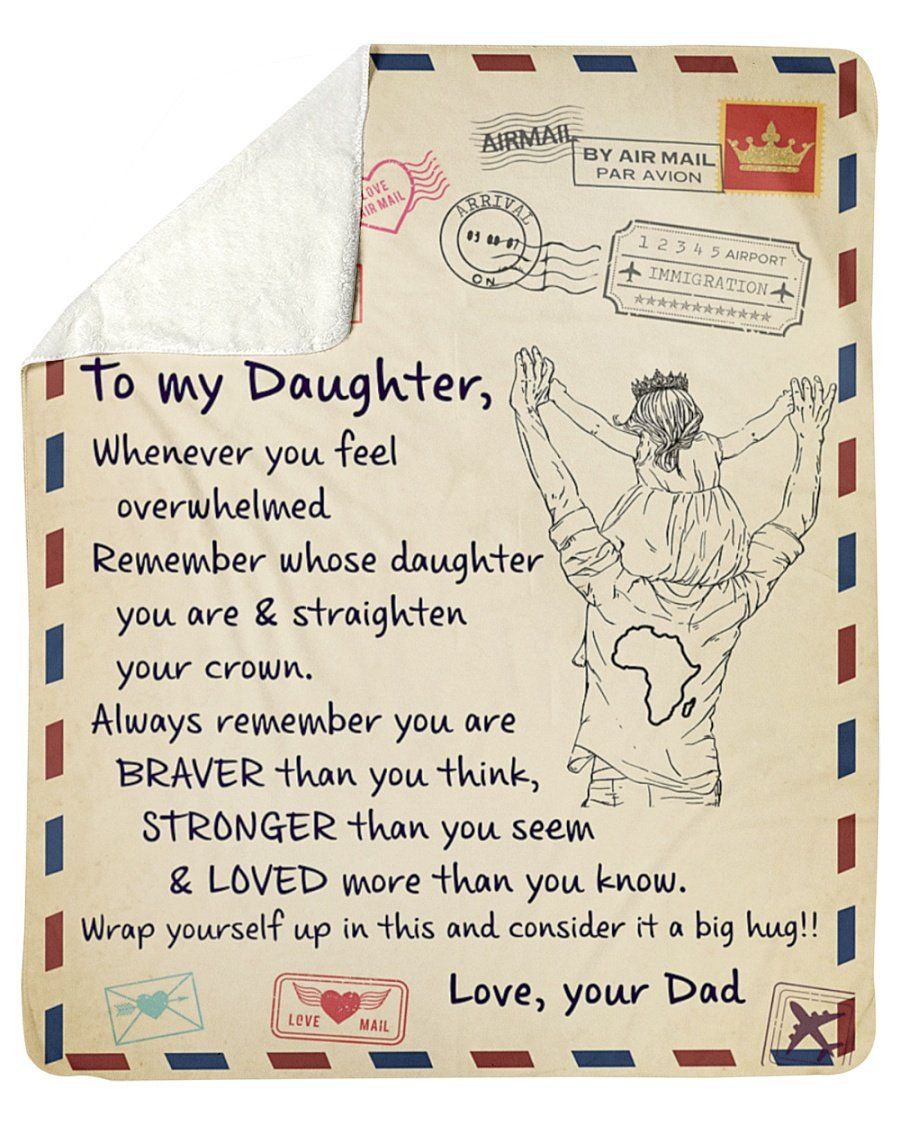 AIRMAIL
BY AIR MAIL
PAR AVION
LOVE
AIR MAIL
ARRIVAL
ON
1 2 3 4 5 AIRPORT
IMMIGRATION
To my Daughter,
Whenever you feel
overwhelmed
Remember whose daughter
you are & straighten
your crown.
Always remember you are
BRAVER than you think,
STRONGER than you seem
& LOVED more than you know.
Wrap yourself up in this and consider it a big hug!!
Love, your Dad
LOVE MAIL